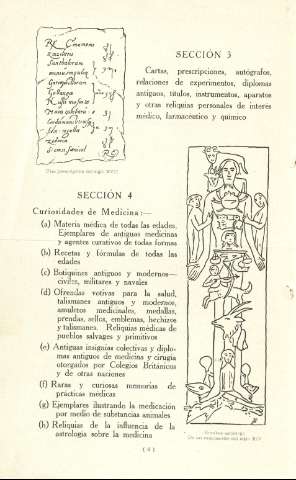 SECCIÓN 3
Cartas, prescripciones, autógrafos,
relaciones de experimentos, diplomas
antiguos, títulos, instrumentos, aparatos
y otras reliquias personales de interés
médico, farmacéutico y químico
Una prescripción del siglo XVII
SECCIÓN 4
Curiosidades de Medicina:—
(a) Materia médica de todas las edades.
Ejemplares de antiguas medicinas
y agentes curativos de todas formas
(b) Recetas y fórmulas de todas las
edades
(c) Botiquines antiguos y modernos—
civiles, militares y navales
(d) Ofrendas votivas para la salud,
talismanes antiguos y modernos,
amuletos medicinales, medallas,
prendas, sellos, emblemas, hechizos
y talismanes. Reliquias médicas de
pueblos salvages y primitivos
(e) Antiguas insignias colectivas y diplo-
mas antiguos de medicina y cirugía
otorgados por Colegios Británicos
y de otras naciones
(f) Raras y curiosas memorias de
prácticas médicas
(g) Ejemplares ilustrando la medicación
por medio de substancias animales
(h) Reliquias de la influencia de la
astrología sobre la medicina
del siglo XIV
( 6 )